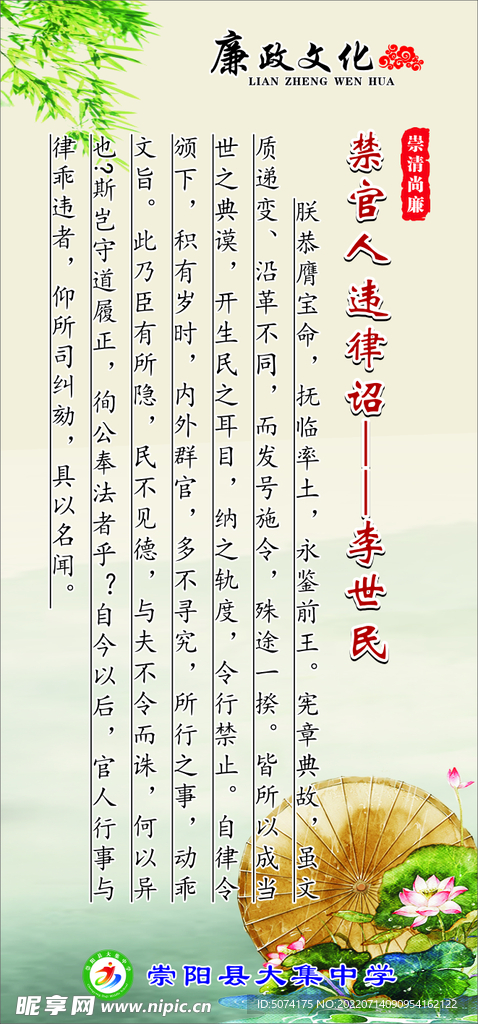 廉政文化
LIAN ZHENG WEN HUA
崇清尚廉
禁官人违律诏——李世民
朕恭膺宝命，抚临率土，永鉴前王。宪章典故，虽文
质递变、沿革不同，而发号施令，殊途一揆。皆所以成当
世之典谟，开生民之耳目，纳之轨度，令行禁止。自律令
颁下，积有岁时，内外群官，多不寻究，所行之事，动乖
文旨。此乃臣有所隐，民不见德，与夫不令而诛，何以异
也?斯岂守道履正，徇公奉法者乎？自今以后，官人行事与
律乖违者，仰所司纠劾，具以名闻。
崇阳县大集中学
昵享网 www.nipic.cn
ID:5074175 NO:20220714090954162122